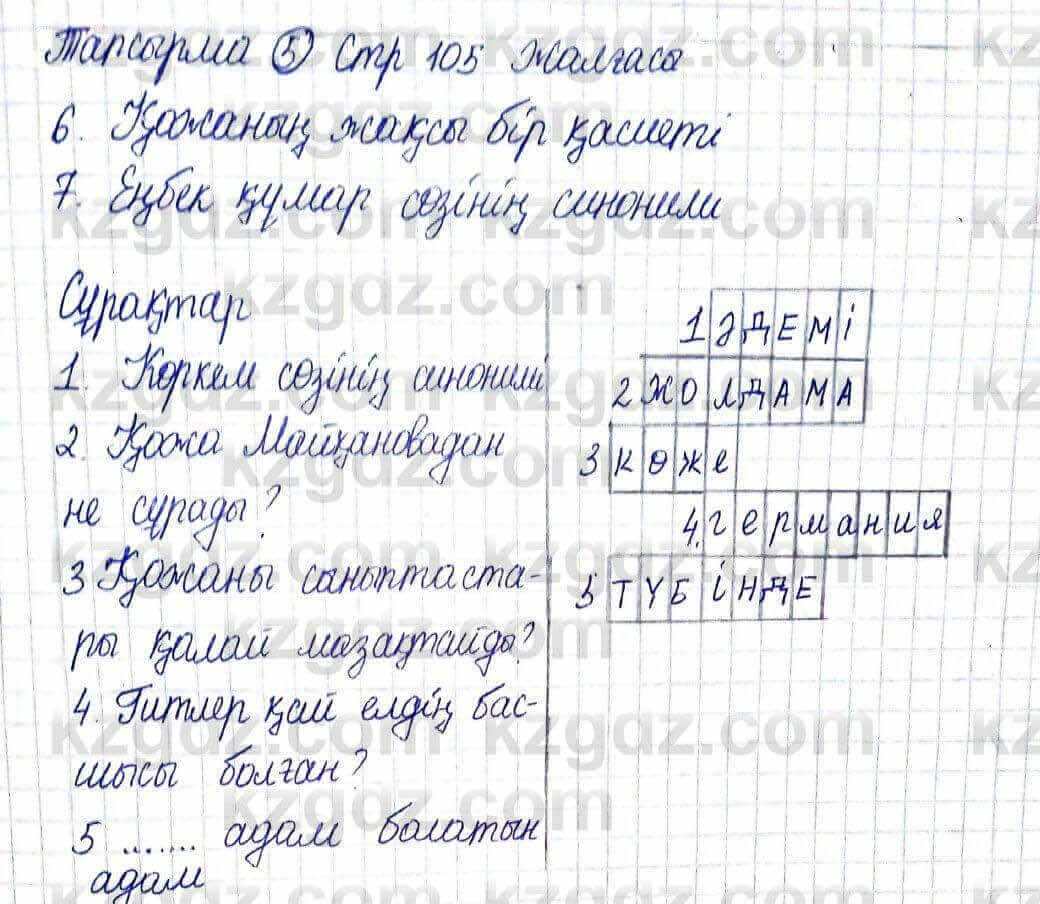 Тапсырма 5 Стр 105 Жалғасы
6. Қожаның жақсы бір қасиеті
7. Еңбек құмар сөзінің синоними
Сұрақтар
1. Көркем сөзінің синонимі
2. Қожа Майқановадан
не сұрады?
3 Қожаны саныптаста-
ры қалай мазақтайды?
4. Гитлер қай елдің бас-
шысы болған?
5 ....... адам болатын
адам
1 ӘДЕМІ
2 ЖОЛДАМА
3 көже
4. германия
5 ТҮБІНДЕ
kzgdz.com